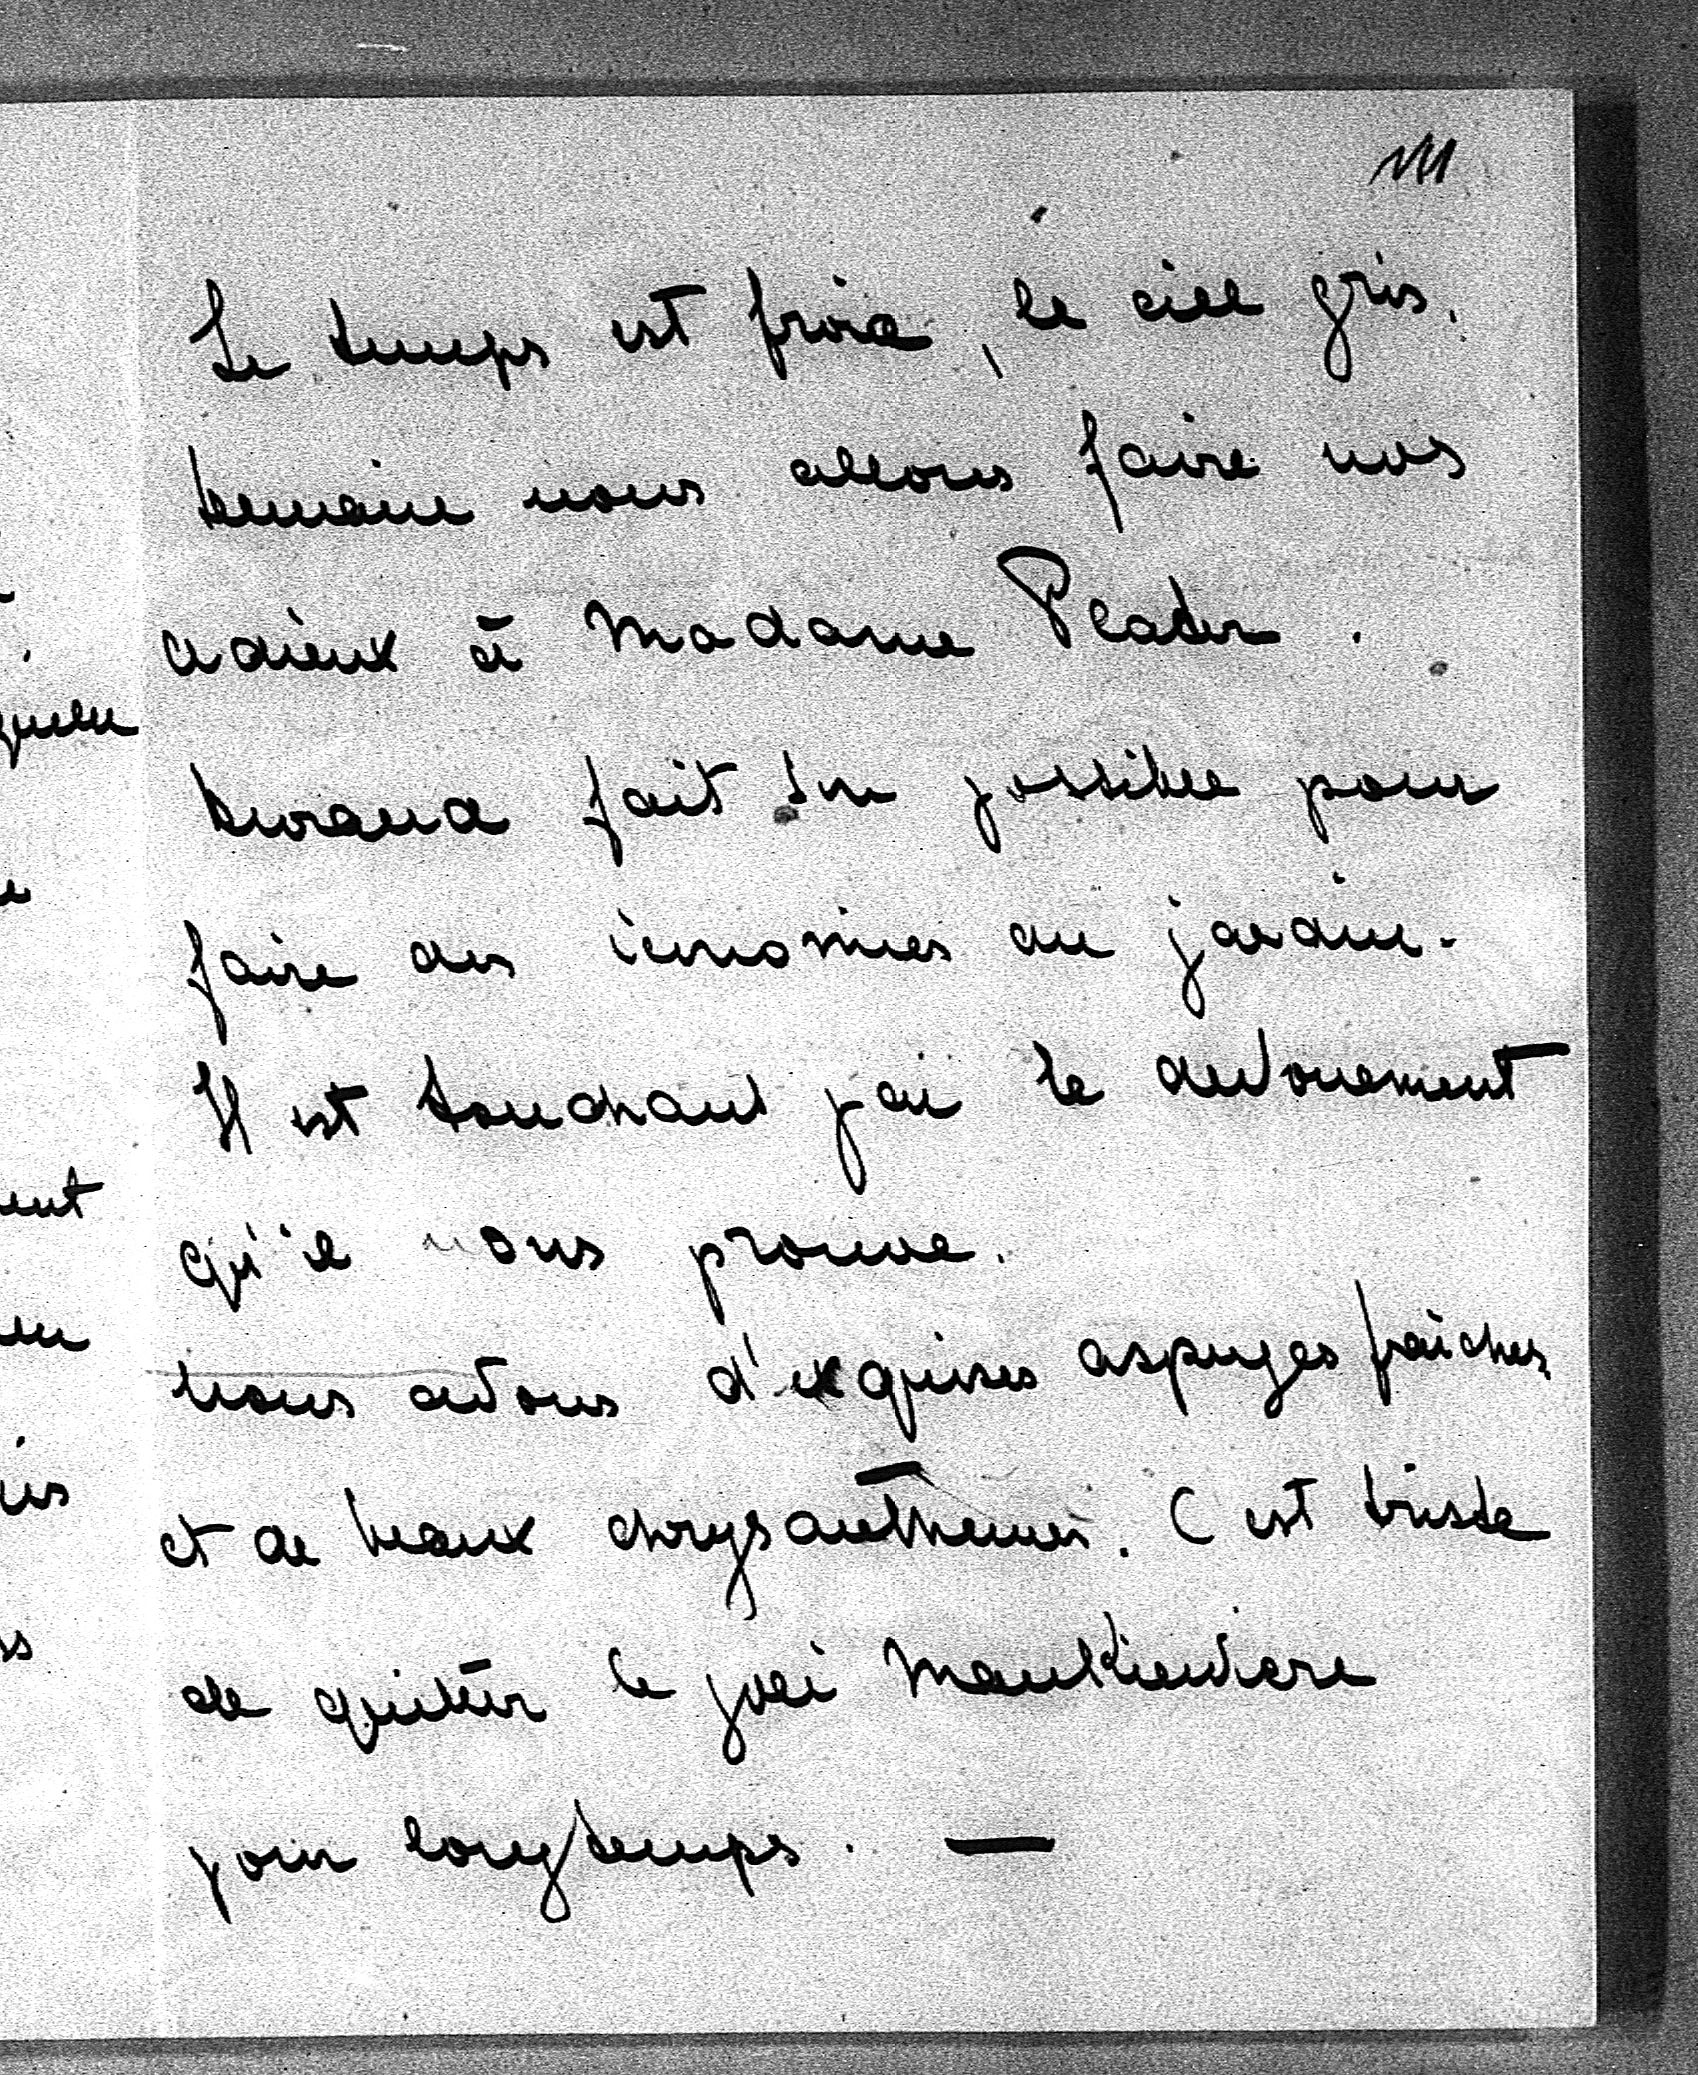 Le temps est froid, le ciel gris.
demain nous allons faire nos
adieux à Madame Plater.
Durand fait son possible pour
faire des economies au jardin.
Il est touchant par le devouement
qu'il nous prouve.
nous avons d'exquises asperges fraiches
et de beaux chrysanthemes. C est triste
de quitter le joli
pour longtemps. —